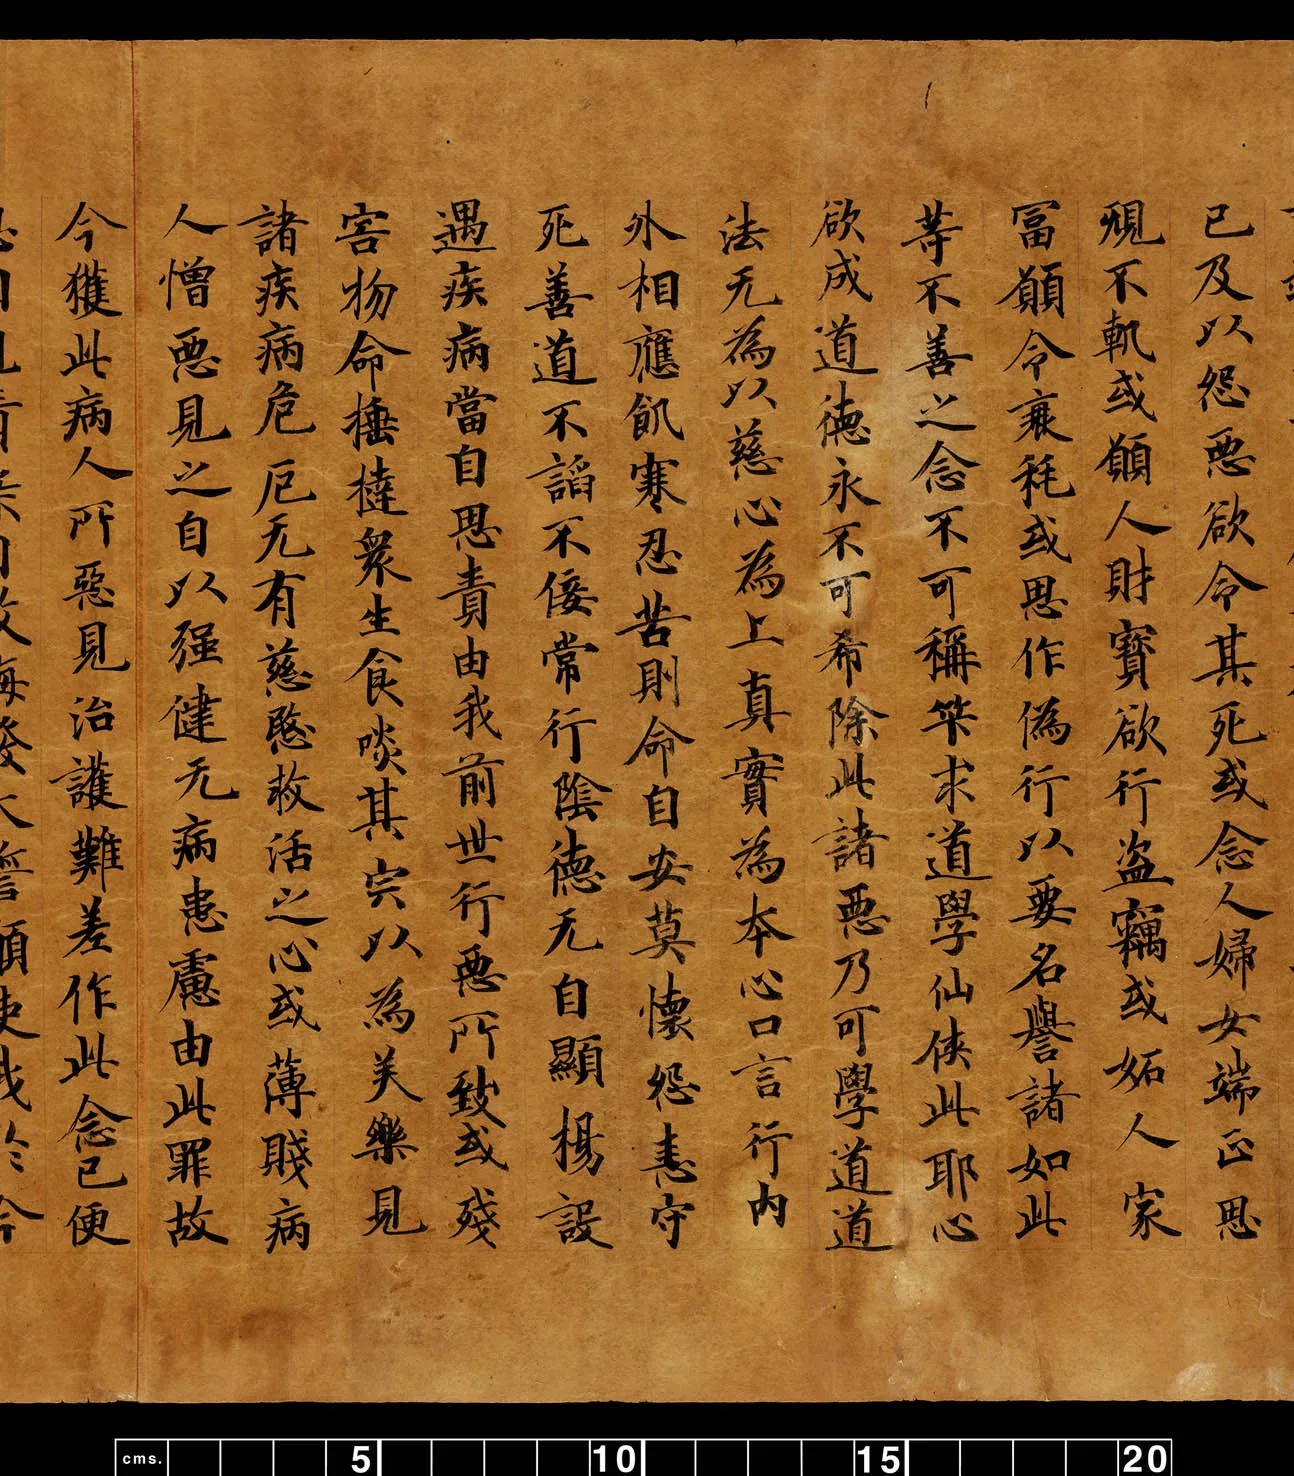 已及以怨悪欲令其死或念人婦女端正思
䙷不軌或願人財寶欲行盗竊或妬人家
冨願令衰耗或思作偽行以要名譽諸如此
荨不善之念不可稱笇求道學仙使此耶心
欲成道徳永不可希除此諸悪乃可學道道
法无為以慈心為上真實為本心口言行内
外相應飢寒忍苦則命自安莫懷怨恚守
死善道不謟不佞常行陰徳无自顯楊設
遇疾病當自思責由我前世行悪所致或殘
害物命捶撻衆生食啖其宍以為美樂見
諸疾病危厄无有慈愍救活之心或薄賤病
人憎悪見之自以强健无病患慮由此罪故
今獲此病人所惡見治護難差作此念已便